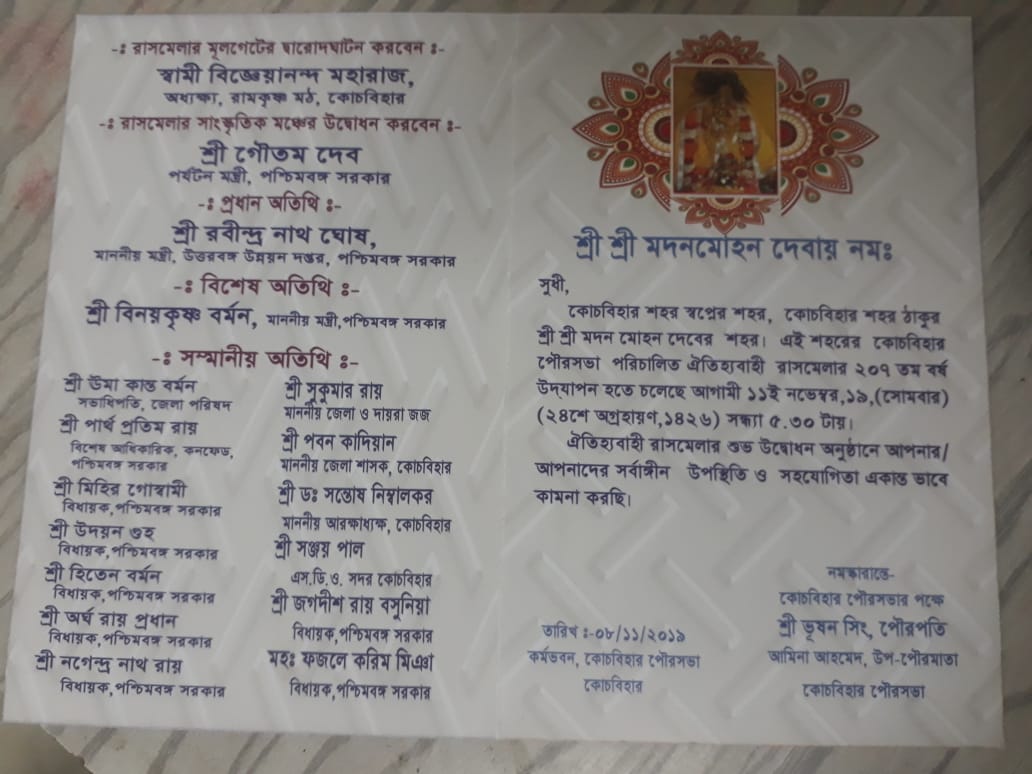 -ঃ রাসমেলার মূলগেটের দ্বারোদঘাটন করবেন ঃ-
স্বামী বিজ্ঞেয়ানন্দ মহারাজ,
অধ্যক্ষ্য, রামকৃষ্ণ মঠ, কোচবিহার
-ঃ রাসমেলার সাংস্কৃতিক মঞ্চের উদ্বোধন করবেন ঃ-
শ্রী গৌতম দেব
পর্যটন মন্ত্রী, পশ্চিমবঙ্গ সরকার
-ঃ প্রধান অতিথি ঃ-
শ্রী রবীন্দ্র নাথ ঘোষ,
মাননীয় মন্ত্রী, উত্তরবঙ্গ উন্নয়ন দপ্তর, পশ্চিমবঙ্গ সরকার
-ঃ বিশেষ অতিথি ঃ-
শ্রী বিনয়কৃষ্ণ বর্মন, মাননীয় মন্ত্রী,পশ্চিমবঙ্গ সরকার
-ঃ সম্মানীয় অতিথি ঃ-
শ্রী উমা কান্ত বর্মন
সভাধিপতি, জেলা পরিষদ
শ্রী পার্থ প্রতিম রায়
বিশেষ আধিকারিক, কনফেড,
পশ্চিমবঙ্গ সরকার
শ্রী মিহির গোস্বামী
বিধায়ক,পশ্চিমবঙ্গ সরকার
শ্রী উদয়ন গুহ
বিধায়ক,পশ্চিমবঙ্গ সরকার
শ্রী হিতেন বর্মন
বিধায়ক,পশ্চিমবঙ্গ সরকার
শ্রী অর্ঘ রায় প্রধান
বিধায়ক,পশ্চিমবঙ্গ সরকার
শ্রী নগেন্দ্র নাথ রায়
বিধায়ক,পশ্চিমবঙ্গ সরকার
শ্রী সুকুমার রায়
মাননীয় জেলা ও দায়রা জজ
শ্রী পবন কাদিয়ান
মাননীয় জেলা শাসক, কোচবিহার
শ্রী ডঃ সন্তোষ নিম্বালকর
মাননীয় আরক্ষাধ্যক্ষ, কোচবিহার
শ্রী সঞ্জয় পাল
এস.ডি.ও. সদর কোচবিহার
শ্রী জগদীশ রায় বসুনিয়া
বিধায়ক,পশ্চিমবঙ্গ সরকার
মহঃ ফজলে করিম মিঞা
বিধায়ক,পশ্চিমবঙ্গ সরকার
শ্রী শ্রী মদনমোহন দেবায় নমঃ
সুধী,
কোচবিহার শহর স্বপ্নের শহর, কোচবিহার শহর ঠাকুর
শ্রী শ্রী মদন মোহন দেবের শহর। এই শহরের কোচবিহার
পৌরসভা পরিচালিত ঐতিহ্যবাহী রাসমেলার ২০৭ তম বর্ষ
উদযাপন হতে চলেছে আগামী ১১ই নভেম্বর,১৯,(সোমবার)
(২৪শে অগ্রহায়ণ,১৪২৬) সন্ধ্যা ৫.৩০ টায়।
ঐতিহ্যবাহী রাসমেলার শুভ উদ্বোধন অনুষ্ঠানে আপনার/
আপনাদের সর্বাঙ্গীন উপস্থিতি ও সহযোগিতা একান্ত ভাবে
কামনা করছি।
নমস্কারান্তে-
কোচবিহার পৌরসভার পক্ষে
শ্রী ভূষন সিং, পৌরপতি
আমিনা আহমেদ, উপ-পৌরমাতা
কোচবিহার পৌরসভা
তারিখ ঃ-০৮/১১/২০১৯
কর্মভবন, কোচবিহার পৌরসভা
কোচবিহার